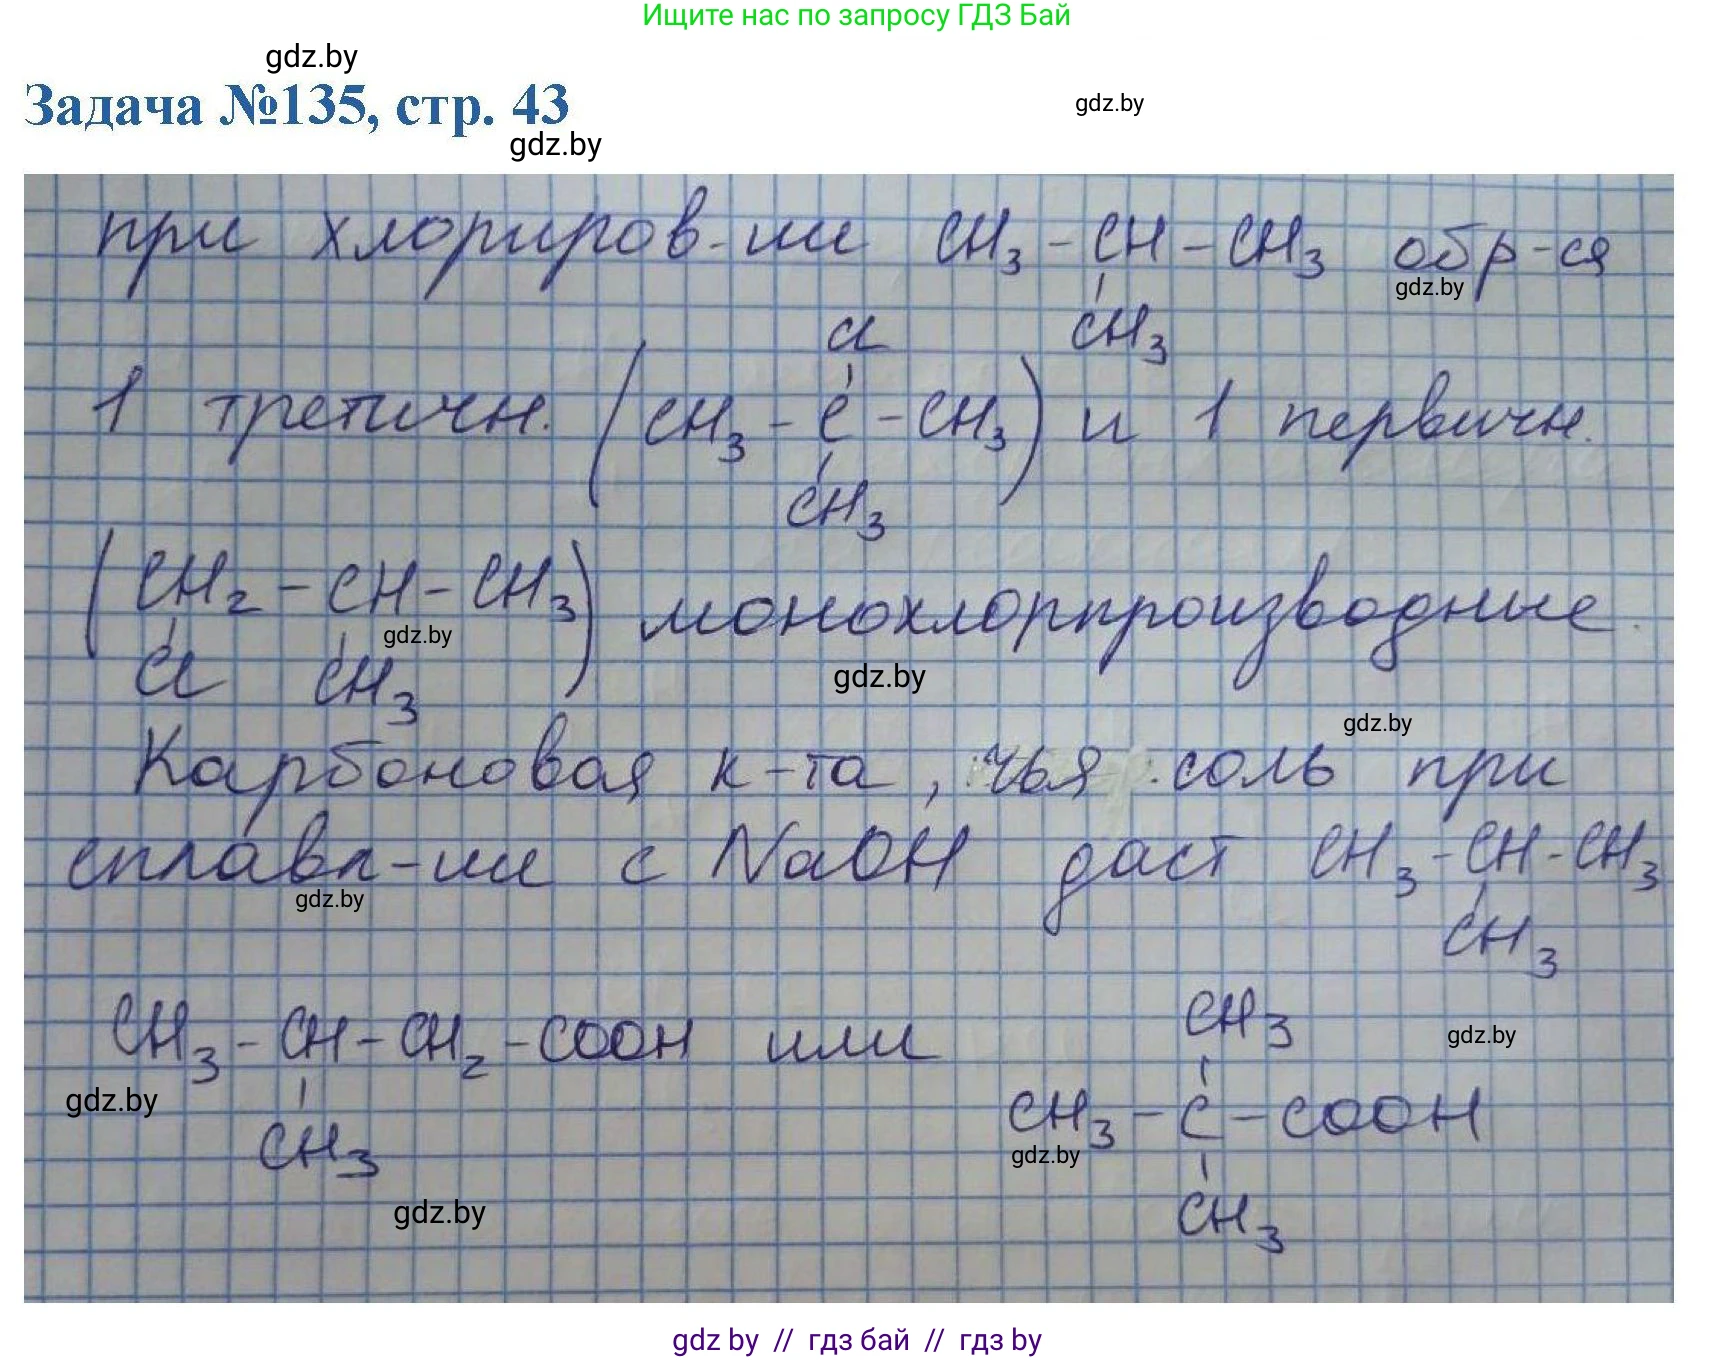 Ищите нас по запросу ГДЗ Бай
gdz.by
Задача №135, стр. 43
gdz.by
gdz.by
при хлориров-ии CH3 - CH - CH3 обр-ся
gdz.by
Cl CH3
1 третичн. (CH3 - C - CH3) и 1 первичн.
CH3
(CH2 - CH - CH3) монохлорпроизводные.
gdz.by
Cl CH3
gdz.by
gdz.by
Карбоновая к-та, чья соль при
сплавл-ии с NaOH даст CH3 - CH - CH3
gdz.by
CH3
CH3
gdz.by
CH3 - CH - CH2 - COOH или
gdz.by
CH3 - C - COOH
gdz.by
CH3
CH3
gdz.by
gdz by // гдз бай // гдз by